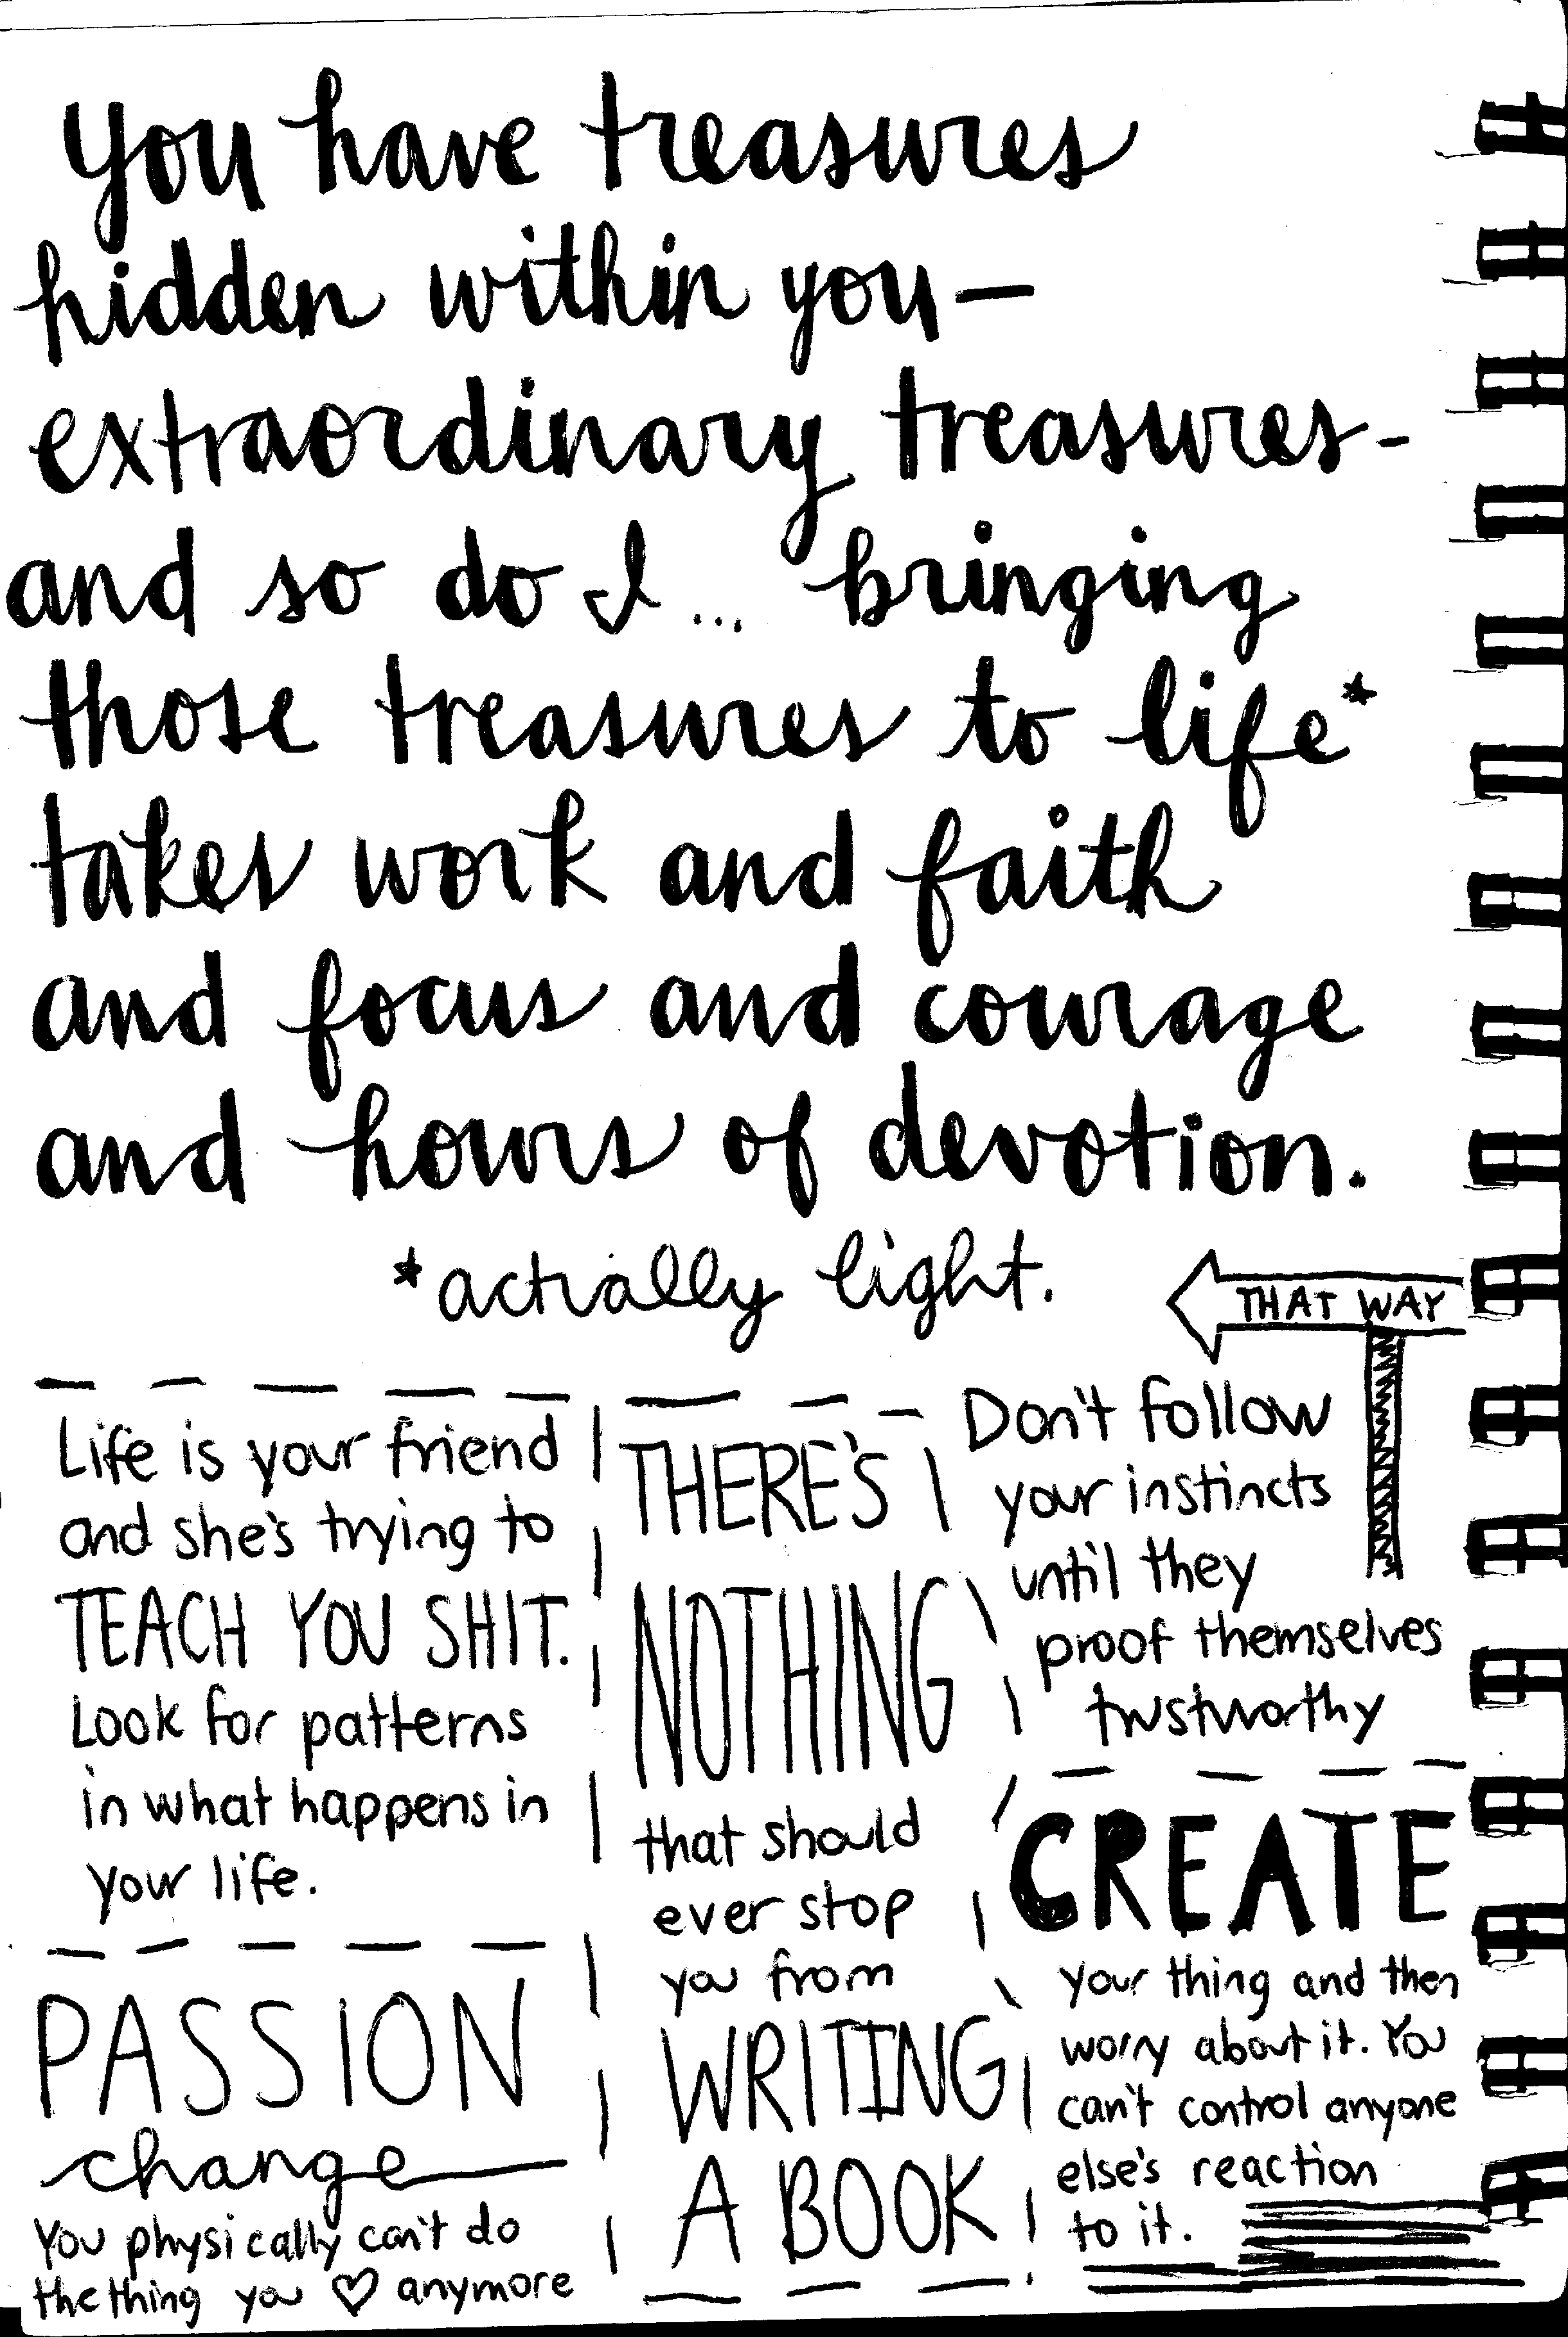 you have treasures
hidden within you—
extraordinary treasures-
and so do I... bringing
those treasures to life*
takes work and faith
and focus and courage
and hours of devotion.
*actually light.
THAT WAY
Life is your friend
and she's trying to
TEACH YOU SHIT.
Look for patterns
in what happens in
your life.
PASSION
change
You physically can't do
the thing you ♡ anymore
THERE'S
NOTHING
that should
ever stop
you from
WRITING
A BOOK
Don't follow
your instincts
until they
proof themselves
trustworthy
CREATE
your thing and then
worry about it. You
can't control anyone
else's reaction
to it.